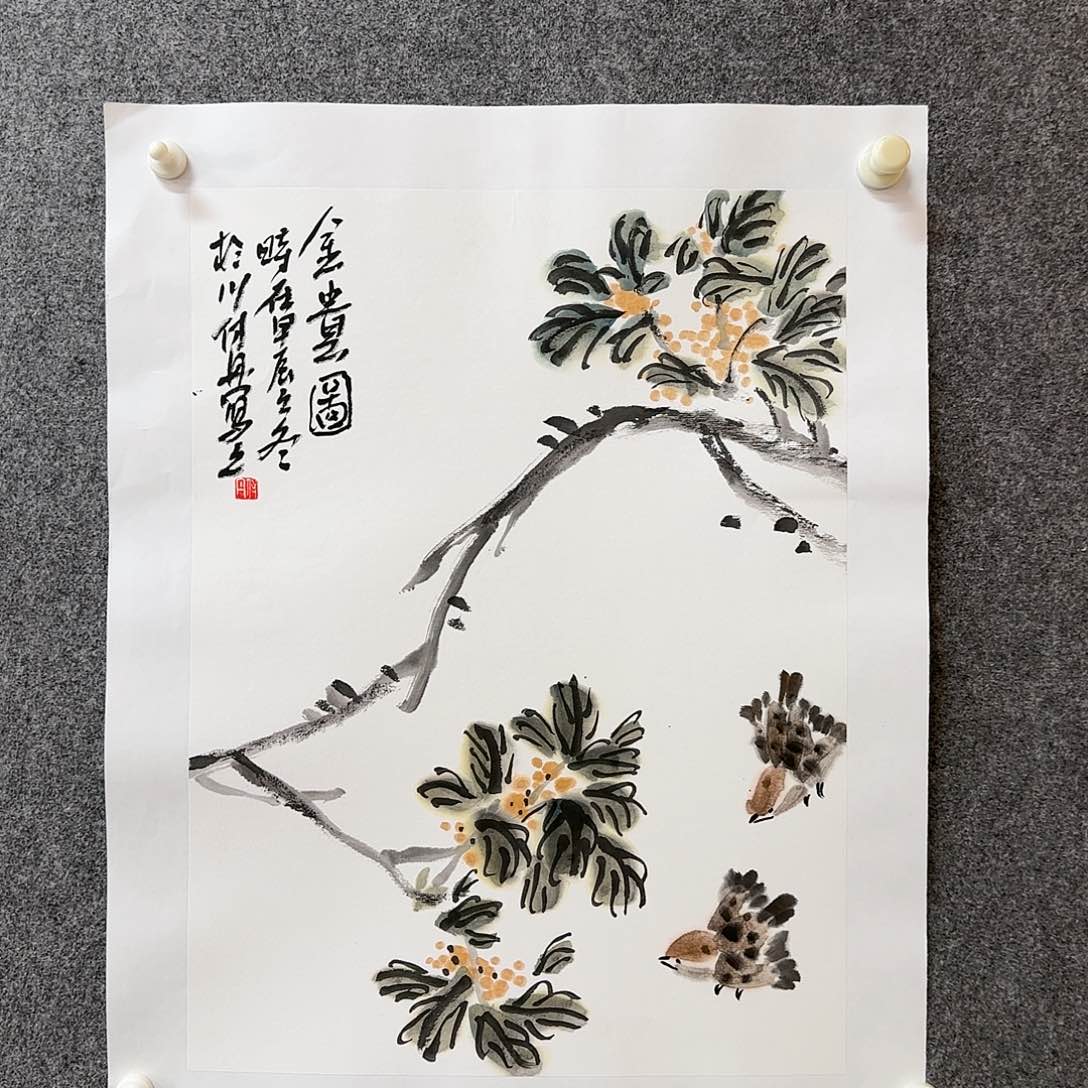 金貴圖
時在甲辰之冬
於川付丹寫之